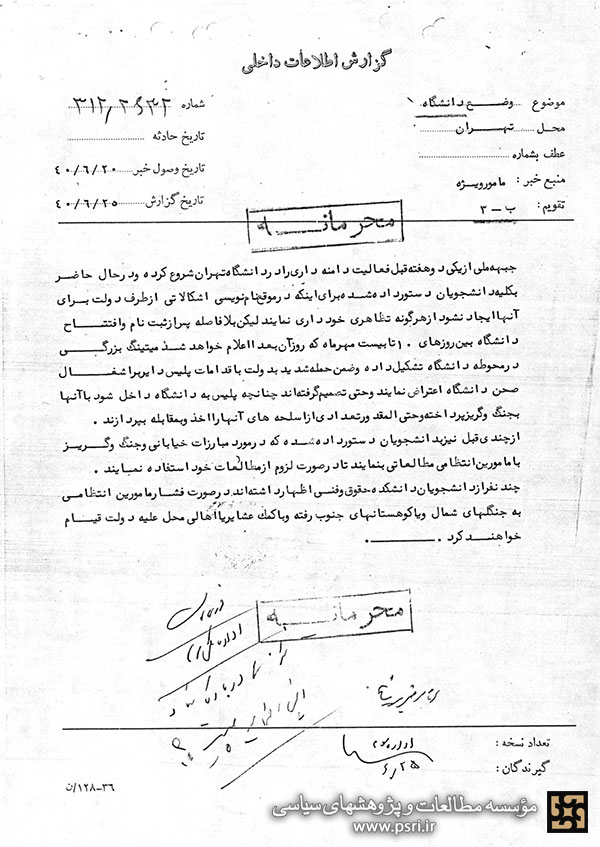 گزارش اطلاعات داخلی
موضوع وضع دانشگاه
محل تهران
عطف بشماره
منبع خبر : مامورویژه
تقویم : ب - ۳
شماره ۳۱۲/
تاریخ حادثه
تاریخ وصول خبر ۴۰/۶/۲۰
تاریخ گزارش ۴۰/۶/۲۵
محرمانه
جبهه‌ملی ازیکی دوهفته‌قبل فعالیت دامنه داری رادر دانشگاه‌تهران شروع کرده ودرحال حاضر
بکلیه‌دانشجویان دستورداده‌شده‌برای‌اینکه درموقع‌نام‌نویسی اشکالاتی ازطرف دولت برای
آنهاایجاد نشودازهرگونه تظاهری خود داری نمایند لیکن‌بلافاصله پس‌ازثبت نام وافتتاح
دانشگاه بین‌روزهای ۱۰ تابیست مهرماه که روزآن‌بعد ااعلام خواهد شد میتینگ بزرگی
درمحوطه دانشگاه تشکیل‌داده وضمن‌حمله‌شدید بدولت باقدامات پلیس دایربراشغال
صحن دانشگاه اعتراض نمایند وحتی تصمیم‌گرفته‌اند چنانچه پلیس به دانشگاه داخل شود باآنها
بجنگ وگریزپرداخته‌وحتی المقدورتعدادی‌ازاسلحه های آنهارااخذ وبمقابله بپردازند .
ازچندی‌قبل نیزبدانشجویان دستورداده‌شده که درمورد مبارزات خیابانی وجنگ وگریز
بامامورین‌انتظامی مطالعاتی بنمایند تادرصورت لزوم ازمطالعات خود استفاده نمایند .
چند نفرازدانشجویان دانشکده‌حقوق‌وفنی‌اظهارداشته‌اند درصورت فشارمامورین انتظامی
به جنگلهای شمال ویاکوهستانهای جنوب رفته وباکمک عشایریااهالی محل علیه دولت قیام
خواهند کرد .
محرمانه
تعداد نسخه :
گیرندگان :
۶/۲۵
۳۶-۱۲۸/ن
مؤسسه مطالعات و پژوهشهای سیاسی
www.psri.ir